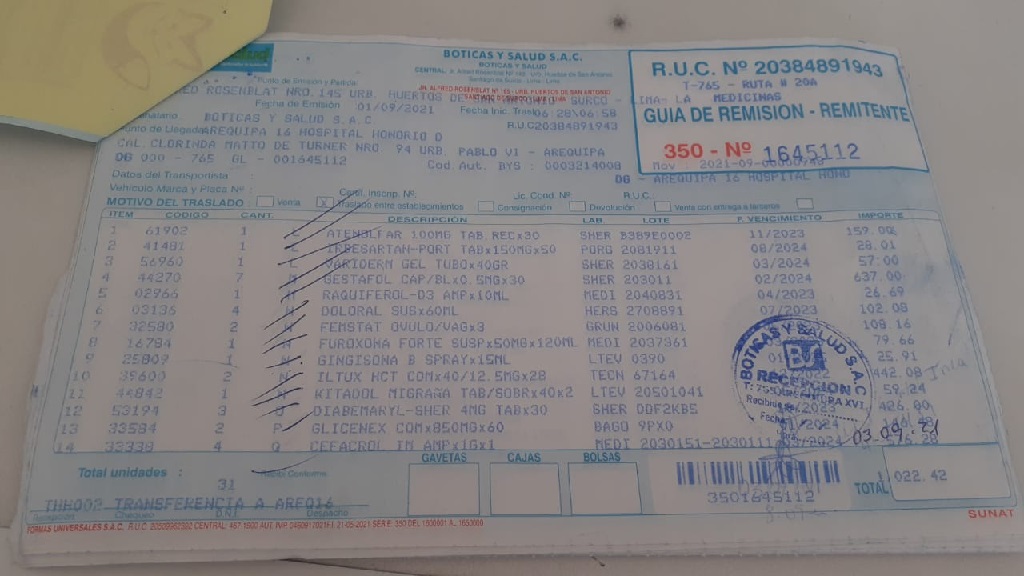 BOTICAS Y SALUD S.A.C.
BOTICAS Y SALUD
R.U.C. Nº 20384891943
T-765 - RUTA # 20A
LIMA- LA MEDICINAS
GUIA DE REMISION - REMITENTE
350 - Nº 1645112
Punto de Emisión y Partida:
ROSENBLAT NRO. 145 URB. HUERTOS DE SURCO -
Fecha de Emisión 01/09/2021 Fecha Inic. 06:28 06:58
BOTICAS Y SALUD S.A.C R.U.C 20384891943
Punto de Llegada AREQUIPA 16 HOSPITAL HONORIO D
CAL. CLORINDA MATTO DE TURNER NRO 94 URB. PABLO VI - AREQUIPA
DB 000 - 765 GL - 001645112 Cod.Aut. BYS : 0003214008
DB - AREQUIPA 16 HOSPITAL HONO
Datos del Transportista :
Vehículo Marca y Placa Nº : Const. Inscrip. Nº. Lic. Cond. Nº R.U.C.:
MOTIVO DEL TRASLADO Venta X Traslado entre establecimientos Consignación Devolución Venta con entrega a terceros
ITEM CODIGO CANT. DESCRIPCIÓN LAB. LOTE F. VENCIMIENTO IMPORTE
1 61902 1 ATENOLFAR 100MG TAB.RECx30 SHER 11/2023 159.00
2 41481 1 IRBESARTAN-PORT TABx150MGx50 PORD 2081911 08/2024 28.01
3 56960 1 VARIDERM GEL TUBOx40GR SHER 2038161 03/2024 57.00
4 44270 7 GESTAFOL CAP/BLx0.5MGx30 SHER 203011 02/2024 637.00
5 02966 1 RAQUIFEROL-D3 AMPx10ML MEDI 2040831 04/2024 26.69
6 03136 4 DOLORAL SUSx60ML HERS 2708891 07/2023 102.08
7 32580 2 FEMSTAT OVULO/VAGx3 GRUN 2006081 108.16
8 16784 1 FUROXONA FORTE SUSPx50MGx120ML MEDI 2037361 79.66
9 25809 1 GINGISONA B SPRAYx15ML LTEV 0390 25.91
10 39600 2 ILTUX HCT COMx40/12.5MGx28 TECN 67164 442.08
11 44842 1 KITADOL MIGRAÑA TAB/SOBRx40x2 LTEV 20501041 59.24
12 53194 3 DIABEMARYL-SHER 4MG TABx30 SHER DDF2KB5 426.00
13 33584 2 GLICENEX COMx850MGx60 BAGO 9PX0
14 33338 4 CEFACROL IM AMPx1Gx1 MEDI 2030151-2030111
BOTICAS Y SALUD S.A.C
BS
RECEPCION
Fecha
03-09-21
Total unidades : 31
GAVETAS CAJAS BOLSAS
3501645112
TOTAL 022.42
TRANSFERENCIA A AREQ16
SUNAT